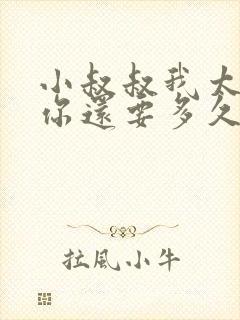 小叔叔我大
你還要多久
拉風小牛